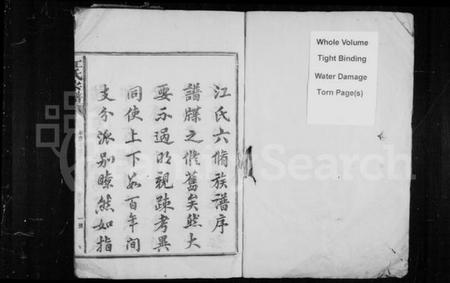 江氏六脩族譜序
譜牒之脩舊矣然大
要不過明親疎考異
同使上下數百年間
支分派别瞭然如指
Whole Volume
Tight Binding
Water Damage
Torn Page(s)
FamilySearch